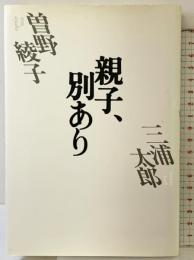 曽野
綾子
親子、
別あり
三浦
太郎